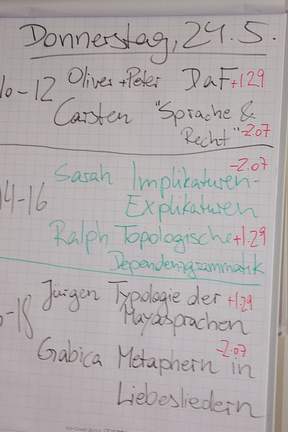 Donnerstag, 24.5.
10-12 Oliver + Peter DaF +1.29
Carsten "Sprache &
Recht" -2.07
-2.07
14-16 Sarah Implikaturen-
Explikaturen
Ralph Topologische +1.29
Dependenzgrammatik
-18 Jürgen Typologie der +1.29
Mayasprachen
Gabica Metaphern in -2.07
Liebesliedern